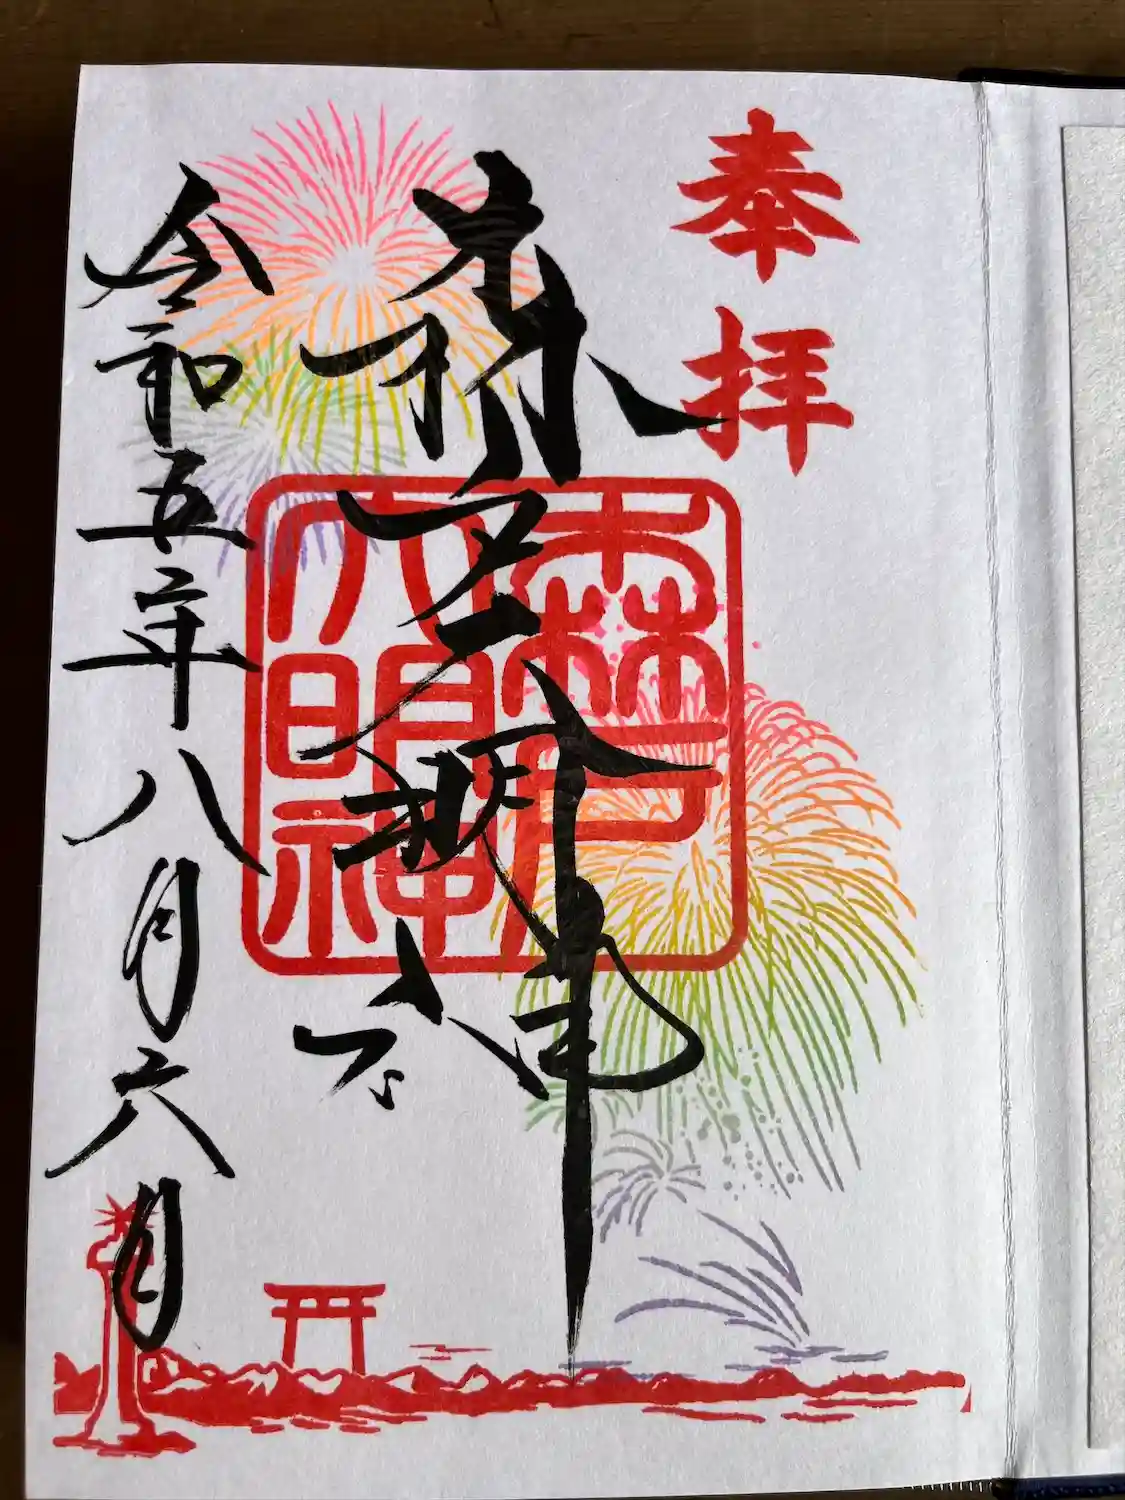 奉拝
森戸大明神
森戸
大明神
令和五年八月六日